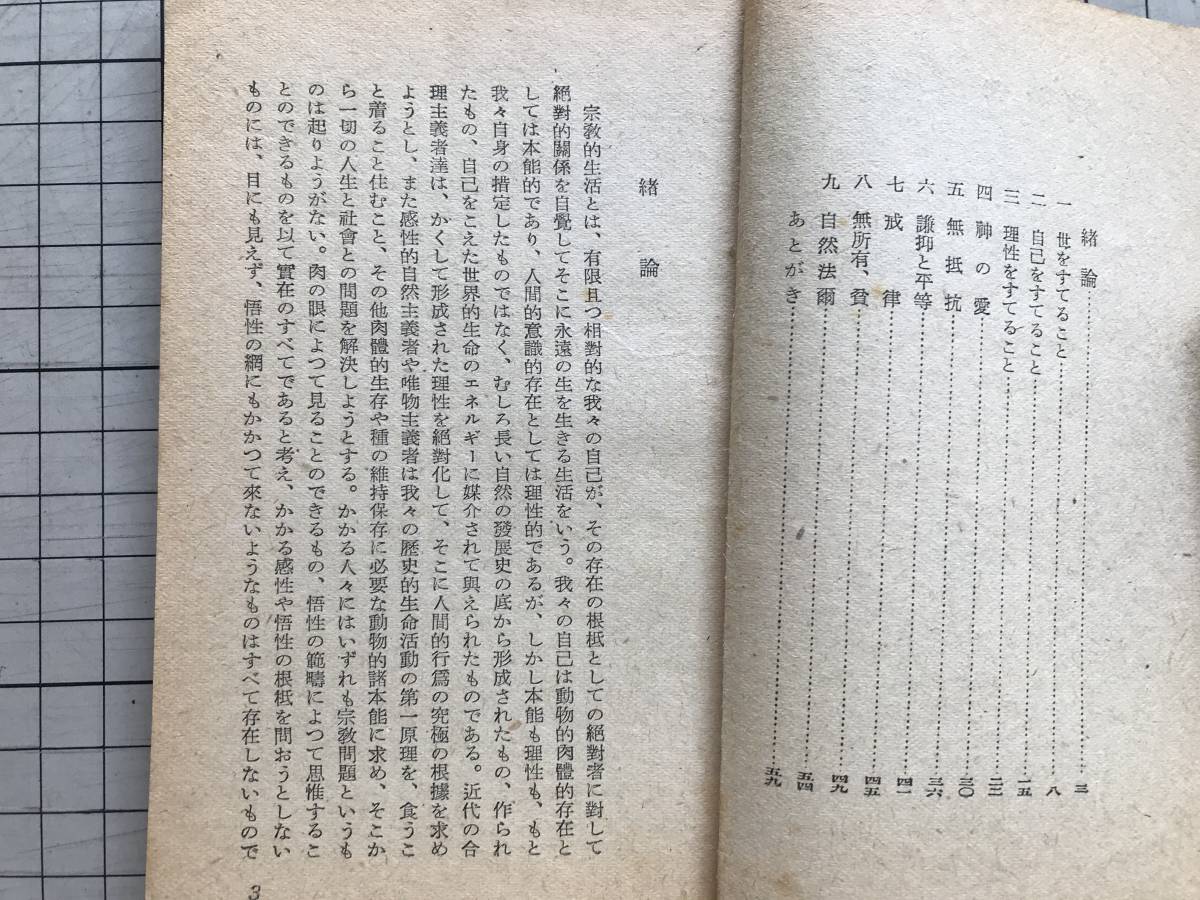 緒論……………………三
一 世をすてること……………………八
二 自己をすてること……………………一五
三 理性をすてること……………………二二
四 神の愛……………………三〇
五 無抵抗……………………三六
六 謙抑と平等……………………四一
七 戒律……………………四五
八 無所有、貧……………………四九
九 自然法爾……………………五四
あとがき……………………五九
緒論
宗教的生活とは、有限且つ相對的な我々の自己が、その存在の根柢としての絕對者に對して
絕對的關係を自覺してそこに永遠の生を生きる生活をいう。我々の自己は動物的肉體的存在と
しては本能的であり、人間的意識的存在としては理性的であるが、しかし本能も理性も、もと
我々自身の措定したものではなく、むしろ長い自然の發展史の底から形成されたもの、作られ
たもの、自己をこえた世界的生命のエネルギーに媒介されて與えられたものである。近代の合
理主義者達は、かくして形成された理性を絕對化して、そこに人間的行爲の究極の根據を求め
ようとし、また感性的自然主義者や唯物主義者は我々の歷史的生命活動の第一原理を、食うこ
と着ること住むこと、その他肉體的生存や種の維持保存に必要な動物的諸本能に求め、そこか
ら一切の人生と社會との問題を解決しようとする。かかる人々にはいずれも宗教問題というも
のは起りようがない。肉の眼によつて見ることのできるもの、悟性の範疇によつて思惟するこ
とのできるものを以て實在のすべてであると考え、かかる感性や悟性の根柢を問おうとしない
ものには、目にも見えず、悟性の網にもかかつて來ないようなものはすべて存在しないもので
3